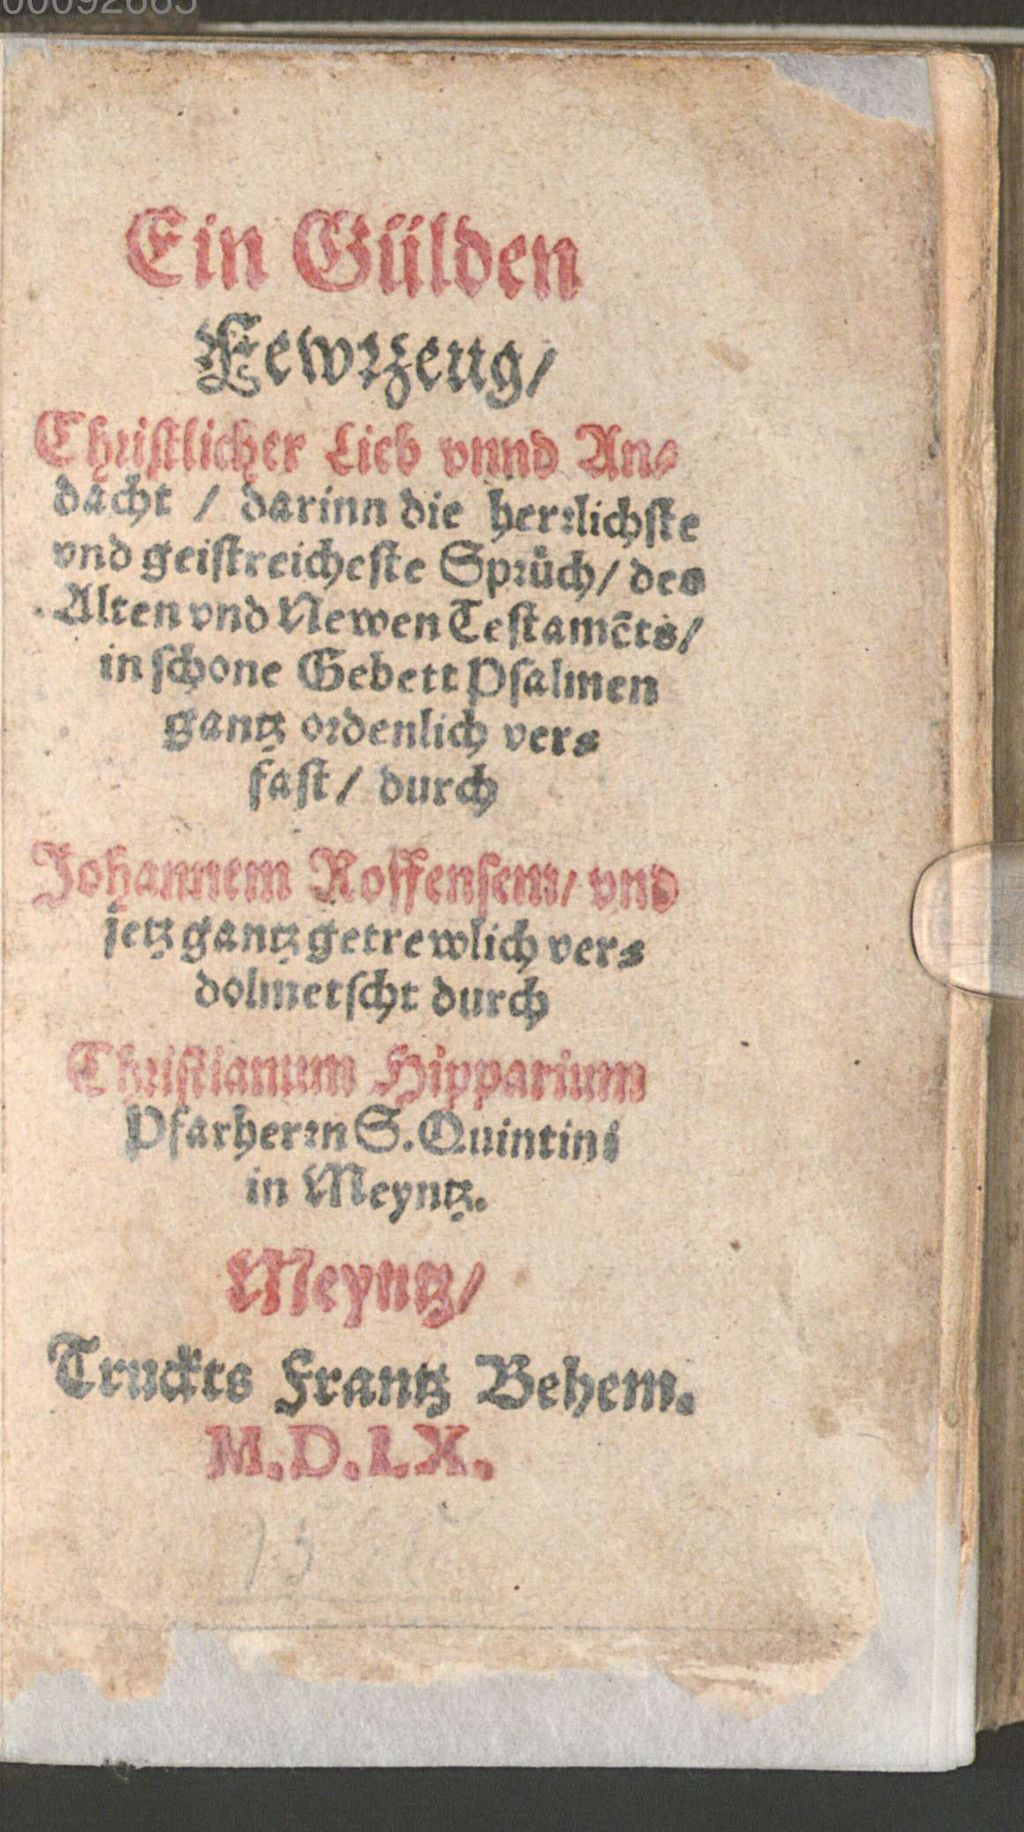 00092665
Ein Gülden
Fewrzeug/
Christlicher Lieb vnnd An⸗
dacht / darinn die herrlichste
vnd geistreicheste Sprůch/ des
Alten vnd Newen Testamẽts/
in schone Gebett Psalmen
gantz ordenlich ver⸗
fast/ durch
Johannem Roffensem/ vnd
jetz gantz getrewlich ver⸗
dolmetscht durch
Christianum Hipparium
Pfarherrn S. Quintini
in Meyntz.
Meyntz/
Truckts Frantz Behem.
M.D.LX.